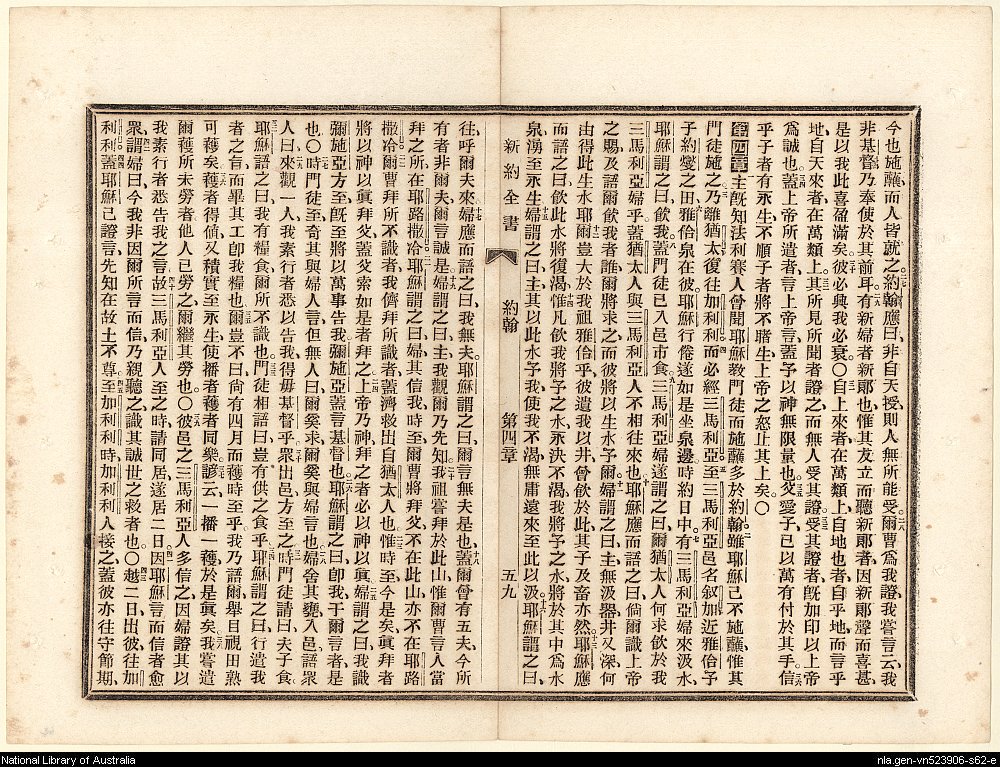 今也施蘸而人皆就之約翰應曰非自天授則人無所能受爾曹爲我證我嘗言云我
非基督乃奉使於其前耳有新婦者新郞也惟其友立而聽新郞者因新郞聲而喜甚
是以我此喜盈滿矣彼必興我必衰〇自上來者在萬類上自地也者自乎地而言乎
地自天來者在萬類上其所見所聞者證之而無人受其證受其證者旣加印以上帝
爲誠也蓋上帝所遣者言上帝言蓋予以神無限量也父愛子已以萬有付於其手信
乎子者有永生不順子者將不睹生上帝之怒止其上矣〇
第四章主旣知法利賽人曾聞耶穌敎門徒而施蘸多於約翰雖耶穌己不施蘸惟其
門徒施之乃離猶太復往加利利而必經三馬利亞至三馬利亞邑名叙加近雅佮予
子約瑟之田雅佮泉在彼耶穌行倦遂如是坐泉邊時約日中有三馬利亞婦來汲水
耶穌謂之曰飲我蓋門徒已入邑市食三馬利亞婦遂謂之曰爾猶太人何求飲於我
三馬利亞婦乎蓋猶太人與三馬利亞人不相往來也耶穌應而語之曰倘爾識上帝
之賜及語爾飲我者誰爾將求之而彼將以生水予爾婦謂之曰主無汲器井又深何
由得此生水耶爾豈大於我祖雅佮乎彼遺我以井曾飲於此其子及畜亦然耶穌應
而語之曰飲此水將復渴惟凡飲我將予之水永決不渴我將予之水將於其中爲水
泉湧至永生婦謂之曰主其以此水予我使我不渴無庸遠來至此以汲耶穌謂之曰
新約全書 約翰 第四章 五九
往呼爾夫來婦應而語之曰我無夫耶穌謂之曰爾言無夫是也蓋爾曾有五夫今所
有者非爾夫爾言誠是婦謂之曰主我觀爾乃先知我祖嘗拜於此山惟爾曹言人當
拜之所在耶路撒冷耶穌謂之曰婦其信我時至爾曹將拜父不在此山亦不在耶路
撒冷爾曹拜所不識者我儕拜所識者蓋濟救出自猶太人也惟時至今是矣眞拜者
將以神以眞拜父蓋父索如是者拜之上帝乃神拜之者必以神以眞婦謂之曰我識
彌施亞方至旣至將以萬事告我彌施亞蓋言基督也耶穌謂之曰卽我于爾言者是
也〇時門徒至奇其與婦人言但無人曰爾奚求爾奚與婦言也婦舍其甕入邑語衆
人曰來觀一人我素行者悉以告我得毋基督乎衆出邑方至之時門徒請曰夫子食
耶穌語之曰我有糧食爾所不識也門徒相語曰豈有供之食乎耶穌謂之曰行遣我
者之旨而畢其工卽我糧也爾豈不曰尙有四月而穫時至乎我乃語爾舉目視田熟
可穫矣穫者得値又積實至永生使播者穫者同樂諺云一播一穫於是眞矣我嘗遣
爾穫所未勞者他人已勞之爾繼其勞也〇彼邑之三馬利亞人多信之因婦證其以
我素行者悉告我之言故三馬利亞人至之時請同居遂居二日因耶穌言而信者愈
衆謂婦曰今我非因爾所言而信乃親聽之識其誠世之救者也〇越二日出彼往加
利利蓋耶穌己證言先知在故土不尊至加利利時加利利人接之蓋彼亦往守節期
National Library of Australia
nla.gen-vn523906-s62-e